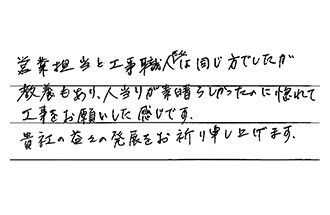 営業担当と工事職人さんは同じ方でしたが
教養もあり、人当りが素晴らしかったのに惚れて
工事をお願いした感じです。
貴社の益々の発展をお祈り申し上げます。